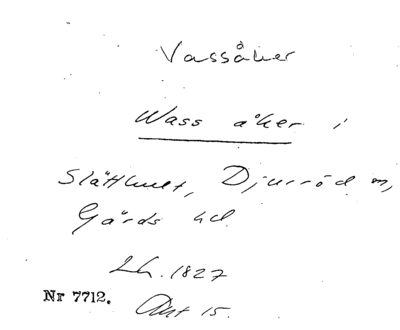 Vassåker
Wass åker i
Slätthult, Djurröd m,
Gärds hd
Lh. 1827
Nr 7712. Akt 15.